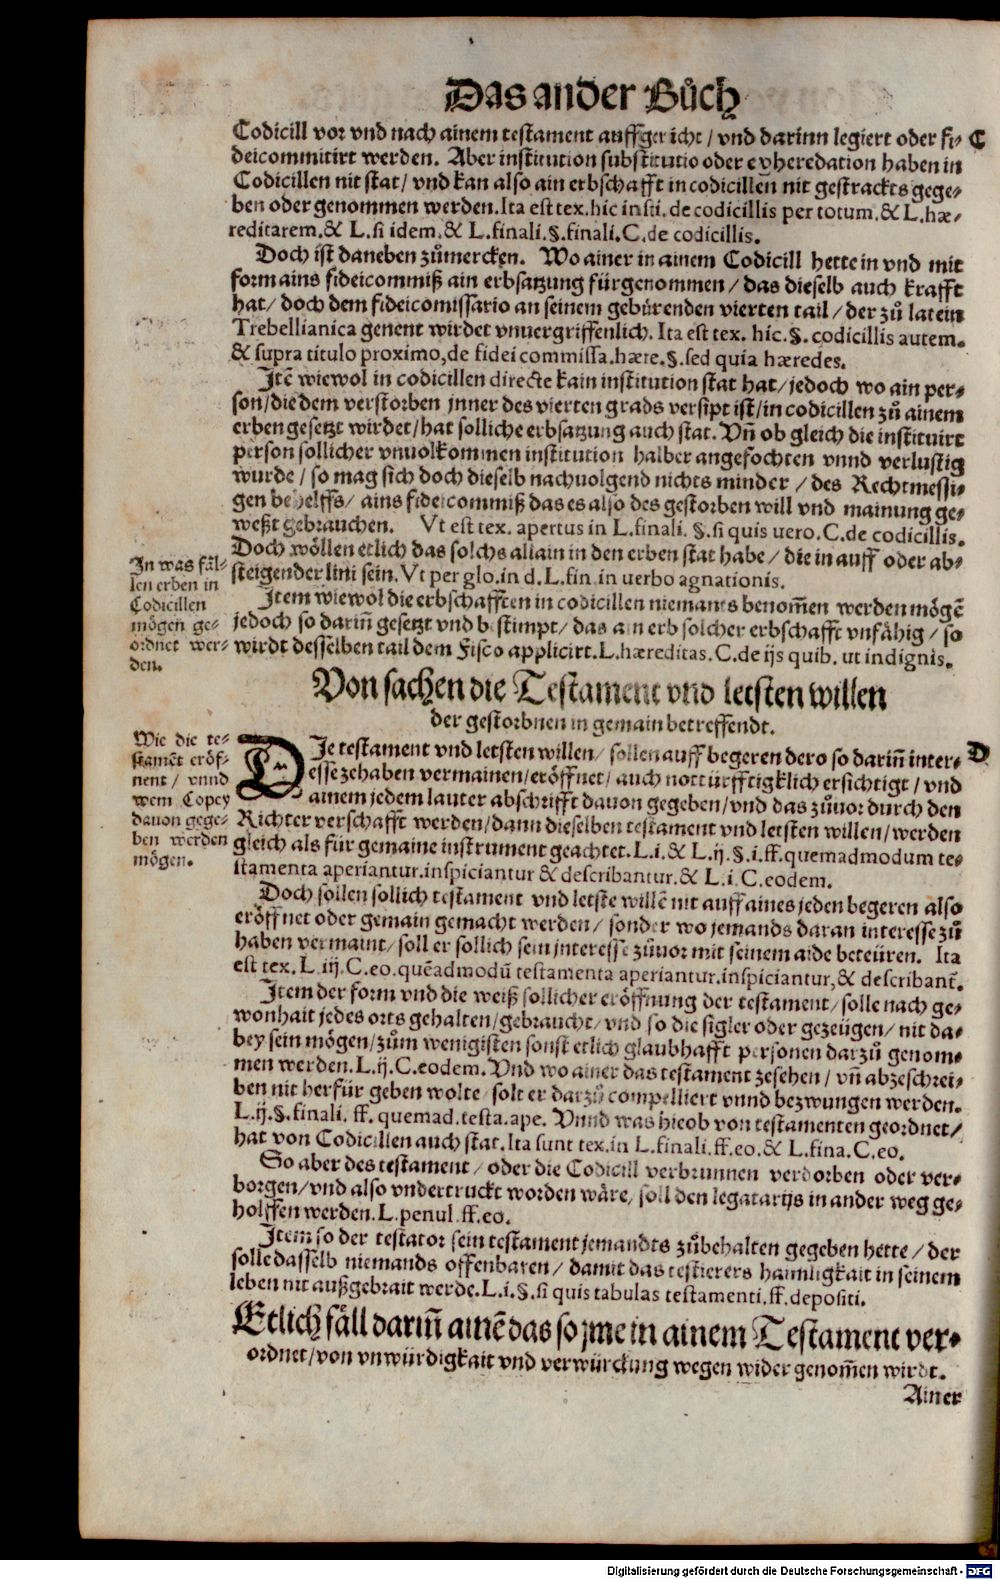 Das ander Bůch
Codicill vor vnd nach ainem testament auffgericht / vnd darinn legiert oder fi- C
deicommitirt werden. Aber institution substitutio oder exheredation haben in
Codicillen nit stat / vnd kan also ain erbschafft in codicillen nit gestrackts gege-
ben oder genommen werden. Ita est tex. hic insti. de codicillis per totum. & L. hæ-
reditarem. & L. si idem. & L. finali. §. finali. C. de codicillis.
Doch ist daneben zůmercken. Wo ainer in ainem Codicill hette in vnd mit
form ains fideicommiß ain erbsatzung fürgenommen / das dieselb auch krafft
hat / doch dem fideicomissario an seinem gebürenden vierten tail / der zů latein
Trebellianica genent wirdet vnuergriffenlich. Ita est tex. hic. §. codicillis autem.
& supra titulo proximo, de fidei commissa. hære. §. sed quia hæredes.
Itē wiewol in codicillen directe kain institution stat hat / jedoch wo ain per-
son / die dem verstorben jnner des vierten grads versipt ist / in codicillen zů ainem
erben gesetzt wirdet / hat solliche erbsatzung auch stat. Vñ ob gleich die instituirt
person sollicher vnuolkommen institution halber angefochten vnnd verlustig
wurde / so mag sich doch dieselb nachuolgend nichts minder / des Rechtmessi-
gen behelffs / ains fideicommiß das es also des gestorben will vnd mainung ge-
weßt gebrauchen. Vt est tex. apertus in L. finali. §. si quis vero. C. de codicillis.
Doch wöllen etlich das solchs allain in den erben stat habe / die in auff oder ab-
steigender lini sein. Vt per glo. in d. L. fin. in uerbo agnationis.
In was fäl-
len erben in
Codicillen
mögen ge-
ordnet wer-
den.
Item wiewol die erbschafften in codicillen niemants benom̄en werden mögē
jedoch so dariñ gesetzt vnd bestimpt / das ain erb solcher erbschafft vnfähig / so
wirdt desselben tail dem Fisco applicirt. L. hæreditas. C. de ijs quib. ut indignis.
Von sachen die Testament vnd letsten willen
der gestorbnen in gemain betreffendt.
Wie die te-
stamēt eröf-
nent / vnnd
wem Copey
dauon gege-
ben werden
mögen.
DIe testament vnd letsten willen / sollen auff begeren dero so dariñ inter- D
esse zehaben vermainen / eröffnet / auch notturfftigklich ersichtigt / vnd
ainem jedem lauter abschrifft dauon gegeben / vnd das zůuor durch den
Richter verschafft werden / dann dieselben testament vnd letsten willen / werden
gleich als für gemaine instrument geachtet. L. i. & L. ij. §. i. ff. quemadmodum te-
stamenta aperiantur. inspiciantur & describantur. & L. i. C. eodem.
Doch sollen sollich testament vnd letste willē nit auff aines jeden begeren also
eröffnet oder gemain gemacht werden / sonder wo jemands daran interesse zů
haben vermaint / soll er sollich sein jnteresse zůuor mit seinem aide beteüren. Ita
est tex. L. iij. C. eo. quēadmodū testamenta aperiantur. inspiciantur, & describant̄.
Item der form vnd die weiß sollicher eröffnung der testament / solle nach ge-
wonhait jedes orts gehalten / gebraucht / vnd so die sigler oder gezeügen / nit da-
bey sein mögen / zům wenigisten sonst etlich glaubhafft personen darzů genom-
men werden. L. ij. C. eodem. Vnd wo ainer das testament zesehen / vñ abzeschrei-
ben nit herfür geben wolte / solt er darzů compelliert vnnd bezwungen werden.
L. ij. §. finali. ff. quemad. testa. ape. Vnnd was hieob von testamenten geordnet /
hat von Codicillen auch stat. Ita sunt tex. in L. finali. ff. eo. & L. fina. C. eo.
So aber des testament / oder die Codicill verbrunnen verdorben oder ver-
borgen / vnd also vndertruckt worden wäre / soll den legatarijs in ander weg ge-
holffen werden. L. penul. ff. eo.
Item so der testator sein testament jemandts zůbehalten gegeben hette / der
solle dasselb niemands offenbaren / damit das testierers haimligkait in seinem
leben nit außgebrait werde. L. i. §. si quis tabulas testamenti. ff. depositi.
Etlich fäll dariñ ainē das so jme in ainem Testament ver-
ordnet / von vnwürdigkait vnd verwürckung wegen wider genom̄en wirdt.
Ainer
Digitalisierung gefördert durch die Deutsche Forschungsgemeinschaft - DFG